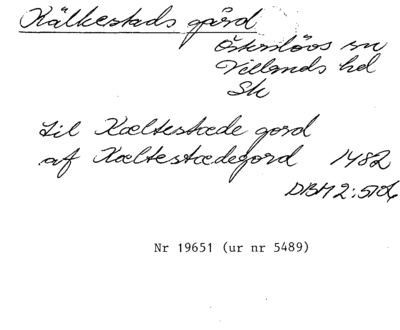 Kälkestads gård
Österslövs sn
Villands hd
Sk
til Kæltestæde gord
af Kæltestædegord 1482
DBH 2:
Nr 19651 (ur nr 5489)